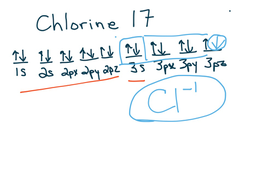 Chlorine 17
↑↓ ↑↓ ↑↓ ↑↓ ↑↓ ↑↓ ↑↓ ↑↓ ↑↓
1s 2s 2px 2py 2pz 3s 3px 3py 3pz
Cl⁻¹